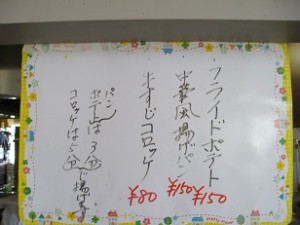 ・フライドポテト ¥150
・中華風揚げパン ¥150
牛すじコロッケ ¥80
パン
ポテトは3分
コロッケは5分で揚げます